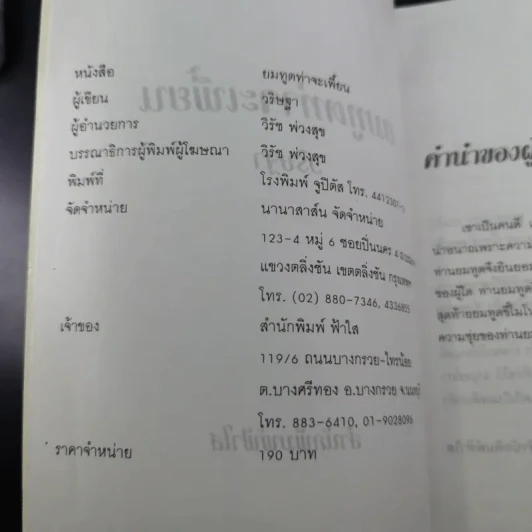 หนังสือ ยมทูตท่าจะเพี้ยน
ผู้เขียน วริษฐา
ผู้อำนวยการ วิรัช พ่วงสุข
บรรณาธิการผู้พิมพ์ผู้โฆษณา วิรัช พ่วงสุข
พิมพ์ที่ โรงพิมพ์ จูปิตัส โทร.
จัดจำหน่าย นานาสาส์น จัดจำหน่าย
123-4 หมู่ 6 ซอยปิ่นนคร 4
แขวงตลิ่งชัน เขตตลิ่งชัน กรุงเทพฯ
โทร. (02) 880-7346, 4336855
เจ้าของ สำนักพิมพ์ ฟ้าใส
119/6 ถนนบางกรวย-ไทรน้อย
ต.บางศรีทอง อ.บางกรวย จ.นนทบุรี
โทร. 883-6410, 01-9028096
ราคาจำหน่าย 190 บาท
คำนำของผู้
เขาเป็นคนดี
น่าอนาถเพราะความ
ท่านยมทูตจึงยินยอม
ของผู้ใด ท่านยมทูต
สุดท้ายยมทูตขี้โมโห
ความซุ่ยของท่านย